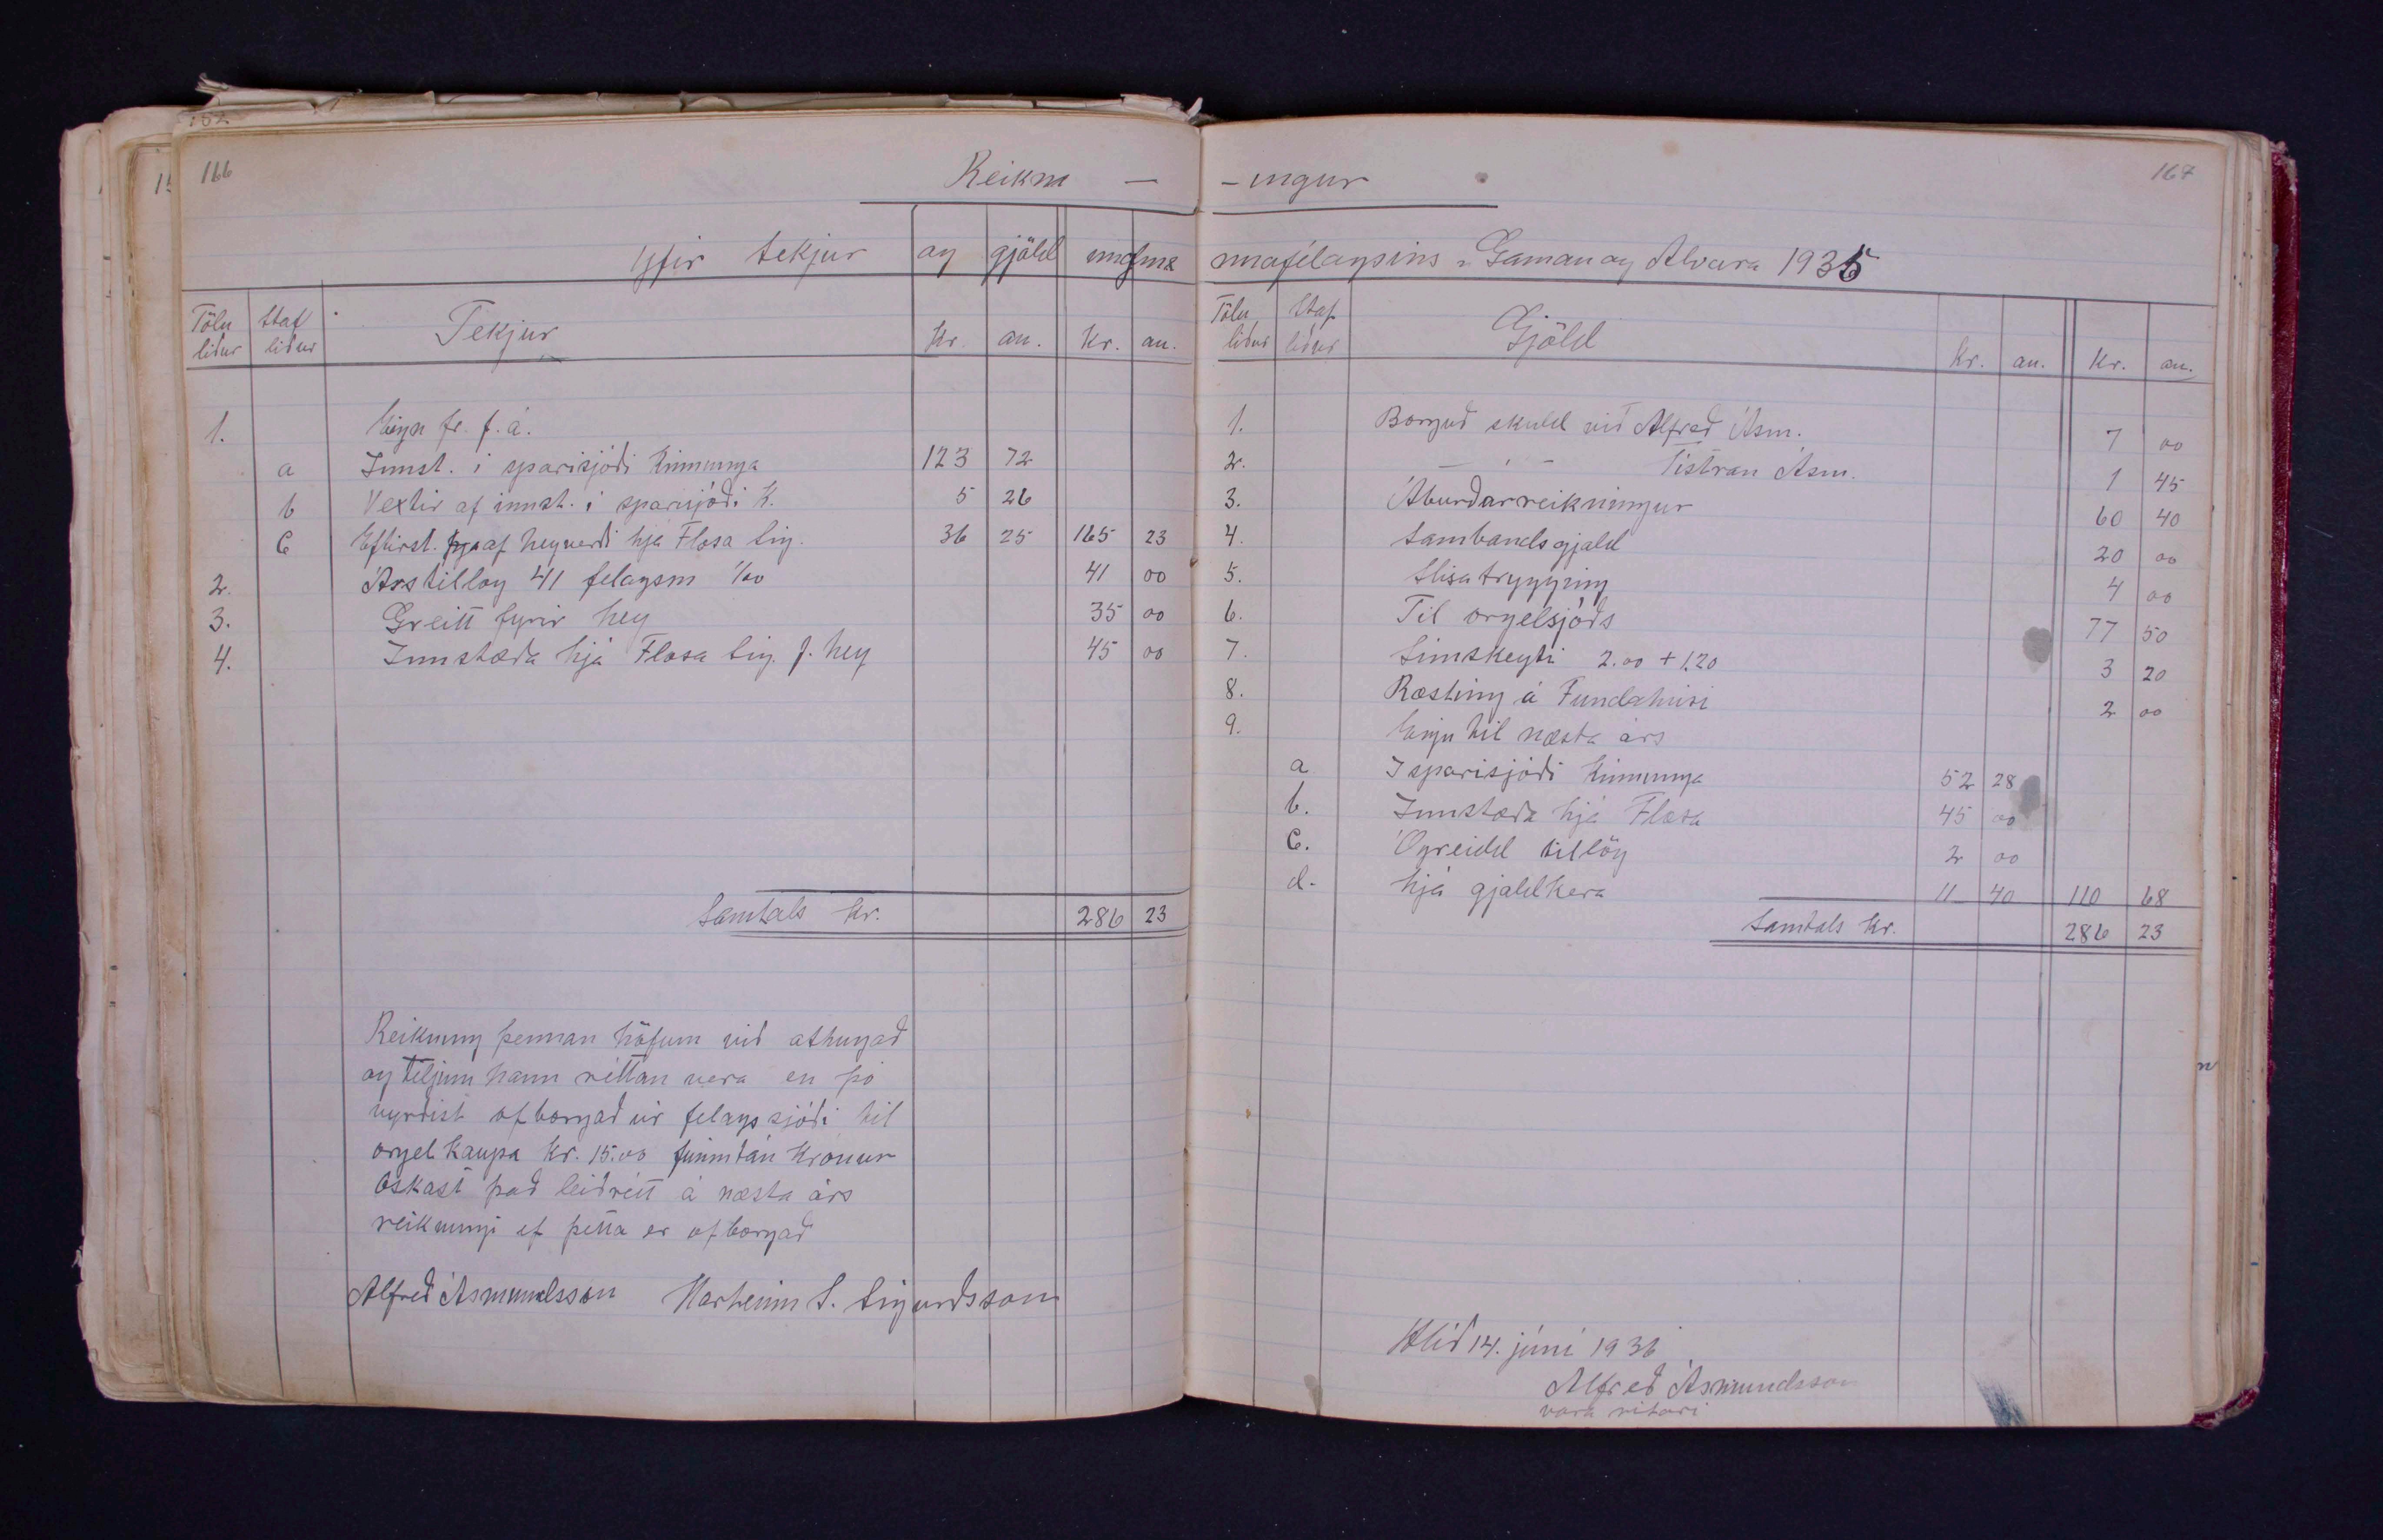 166
Reikn —
yfir tekjur og gjöld ungme
Tölu liður Staf liður Tekjur Kr. au. Kr. au.
1. Eign fr. f. á.
a Innst. í sparisjóði Kinnunga 123 72
b Vextir af innst. í sparisjóði K. 5 26
c Eftirst. af heyverði hjá Flosa Sig. 36 25 165 23
2. Árstillög 41 felagsm 1/00 41 00
3. Greitt fyrir hey 35 00
4. Innstæða hjá Flosa Sig. f. hey 45 00
Samtals kr. 286 23
Reikning þennan höfum við athugað
og teljum hann réttan vera en þó
virðist ofborgað úr felags sjóði til
orgel kaupa kr. 15.00 fimmtán krónur
Óskast það leiðrétt á næsta árs
reikningi ef þetta er ofborgað
Alfreð Ásmundsson S. Sigurdsson
167
- ingur
nnafélagsins „Gaman og Alvara 1935
Tölu liður Staf liður Gjöld Kr. au. Kr. au.
1. Borguð skuld við Alfreð Ásm. 7 00
2. — " — Tistran Ásm. 1 45
3. Áburðarreikningur 60 40
4. Sambandsgjald 20 00
5. Slisatrygging 4 00
6. Til orgelsjóðs 77 50
7. Símskeyti 2.00 + 1.20 3 20
8. Ræsting á Fundahúsi 2 00
9. Eign til næsta árs
a I sparisjóði Kinnunga 52 28
b. Innstæða hjá Flosa 45 00
c. Ógreidd tillög 2 00
d. hjá gjaldkera 11 40 110 68
Samtals kr. 286 23
Hlíð 14. júní 1936
Alfreð Ásmundsson
vara ritari